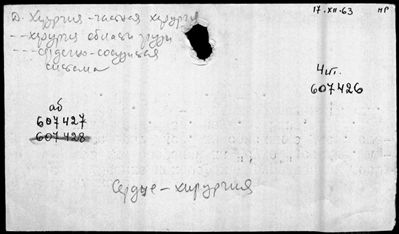 Д. Хирургия - частная хирургия
-- хирургия области груди
--- сердечно-сосудистая
система
17-XII-63 НР
Чит.
607426
аб
607427
607428
Сердце - хирургия